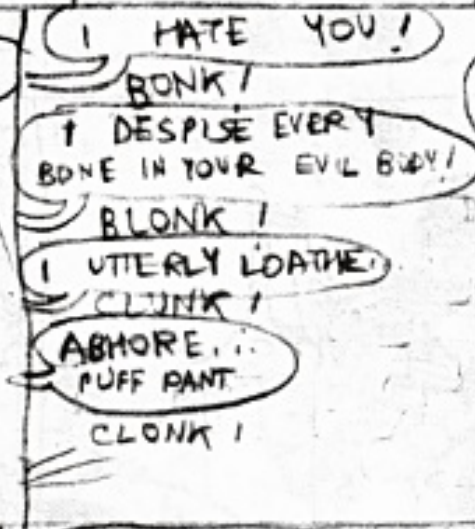 I HATE YOU!
BONK!
I DESPISE EVERY
BONE IN YOUR EVIL BODY!
BLONK!
I UTTERLY LOATHE.
CLUNK!
ABHORE...
PUFF PANT
CLONK!